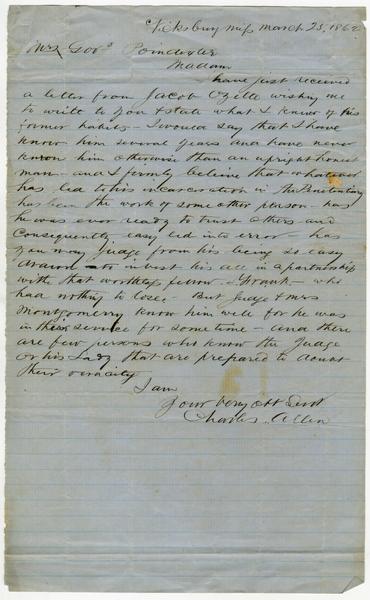 Vicksburg Miss March 23, 1862
Mrs Govr Poindexter
Madam
have just received
a letter from Jacob Ozelle wishing me
to write to you & state what I know of his
former habits - I would say that I have
know him several years and have never
known him otherwise than an upright honest
man - and I firmly believe that whatever
has led to his incarceration in the Penitentiary
has been the work of some other person - has
he was ever ready to trust others and
consequently easy led into error - has
you may Judge from his being so easy
drawn to invest his all in a partnership
with that worthless fellow - who
had nothing to lose - But Judge & Mrs
Montgomery know him well for he was
in their service for some time - and there
are few persons who know the Judge
or his Lady that are prepared to doubt
their veracity
I am
Your Very Obt Servt
Charles Allen